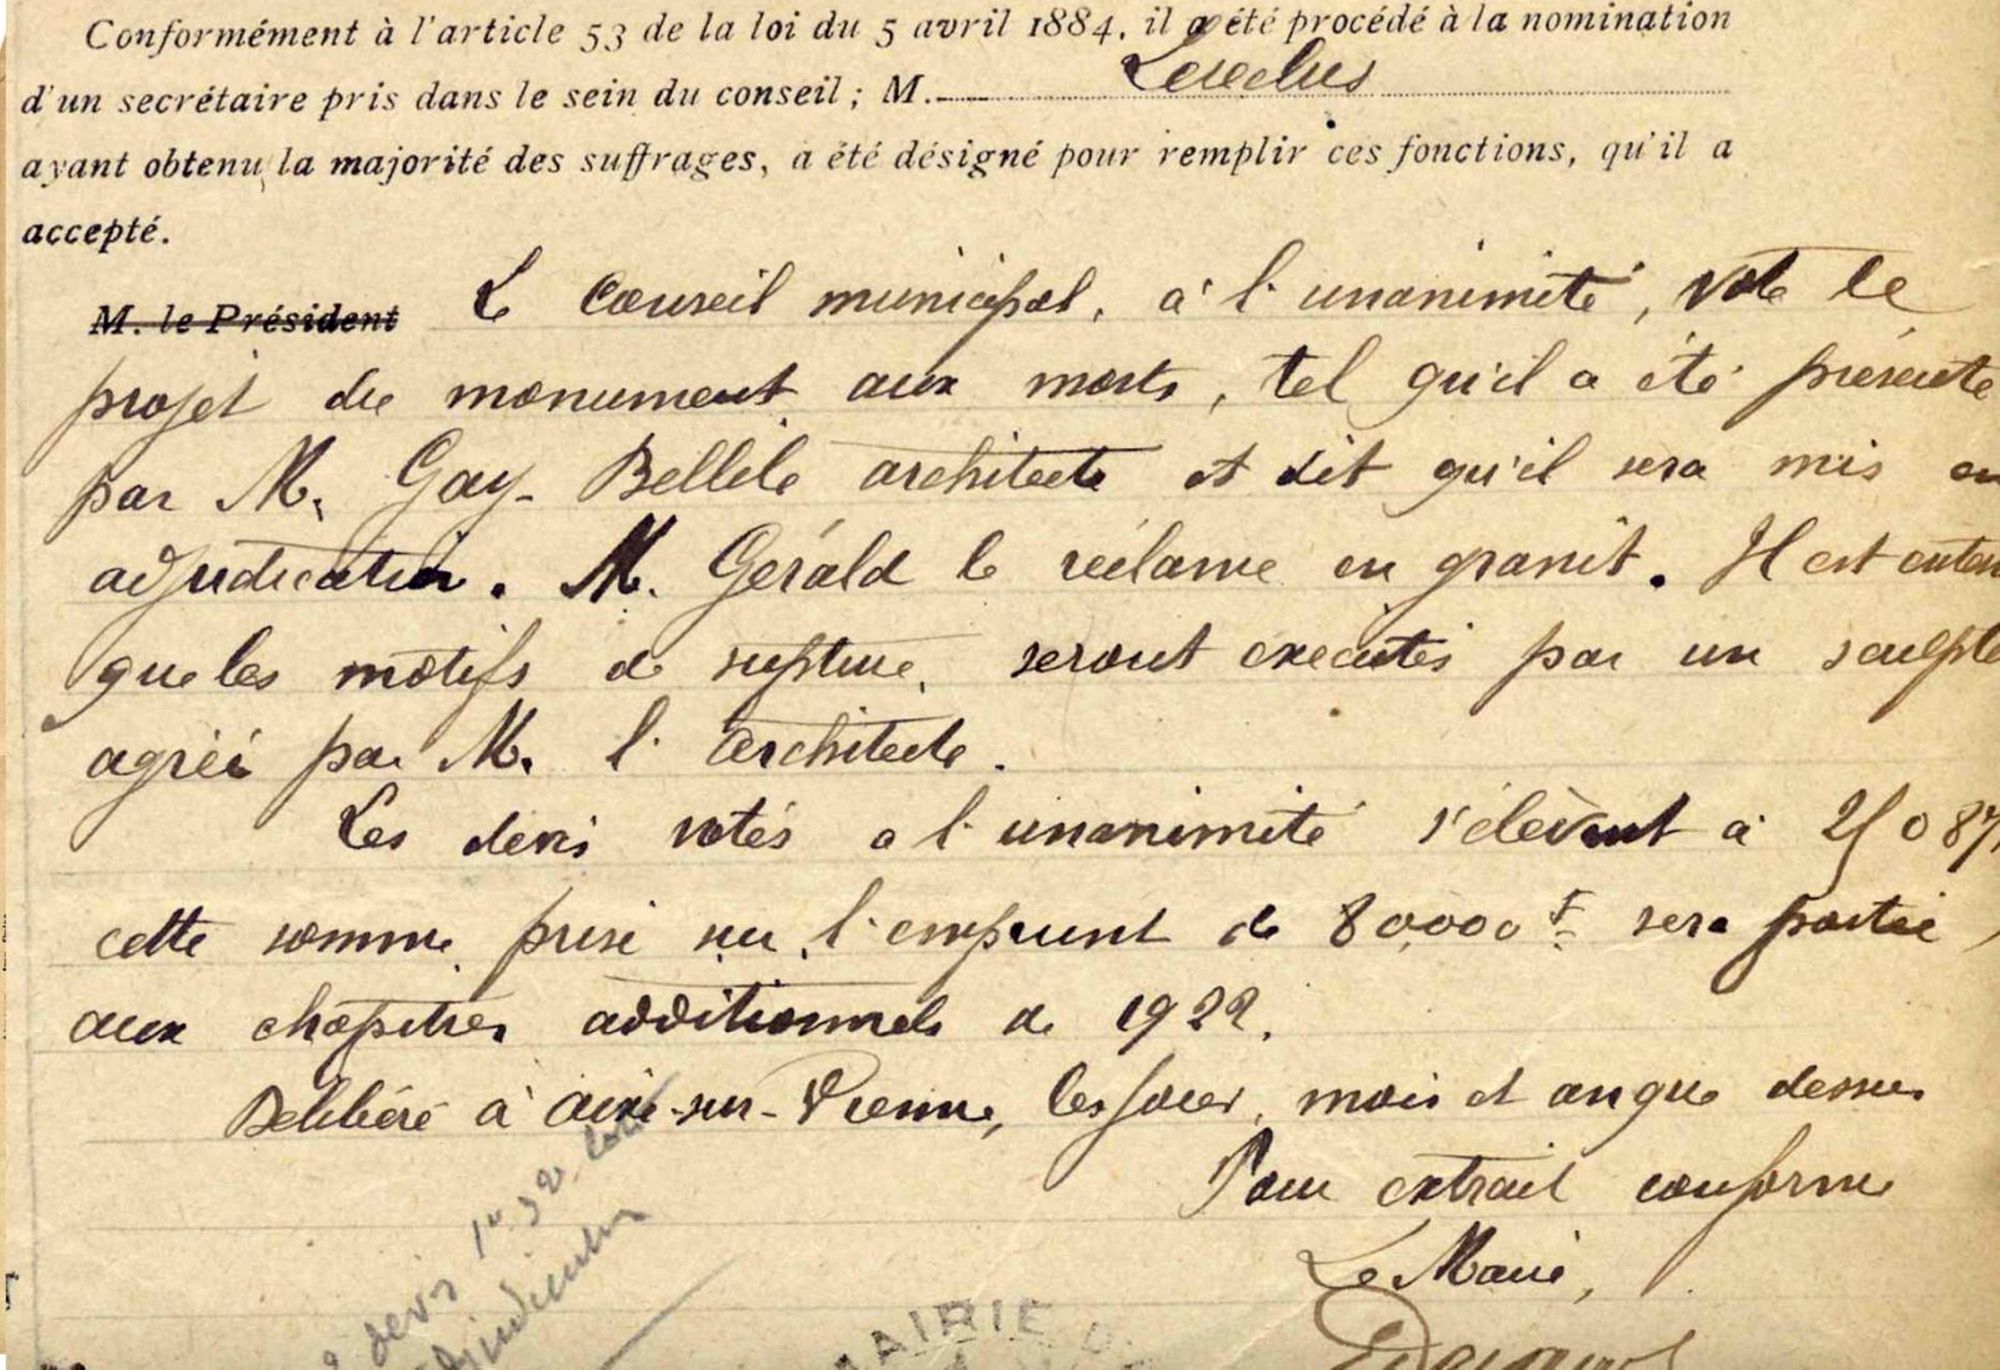 Conformément à l'article 53 de la loi du 5 avril 1884, il a été procédé à la nomination
d'un secrétaire pris dans le sein du conseil ; M.
ayant obtenu la majorité des suffrages, a été désigné pour remplir ces fonctions, qu'il a
accepté.
M. le Président Le Conseil municipal, à l'unanimité, vote le
projet du monument aux morts, tel qu'il a été présenté
par M. Gay-Bellile architecte et dit qu'il sera mis en
adjudication. M. Gérald le réclame en granit. Il est enten
que les motifs de seront exécutés par un sculpte
agréé par M. l'architecte.
Les devis votés à l'unanimité s'élèvent à 25087
cette somme prise sur l'emprunt de 80,000 F sera portée
aux chapitres additionnels de 1922.
Délibéré à Aixe-sur-Vienne, les jour, mois et an que dessus
Pour extrait conforme
Le Maire,
devis
MAIRIE D